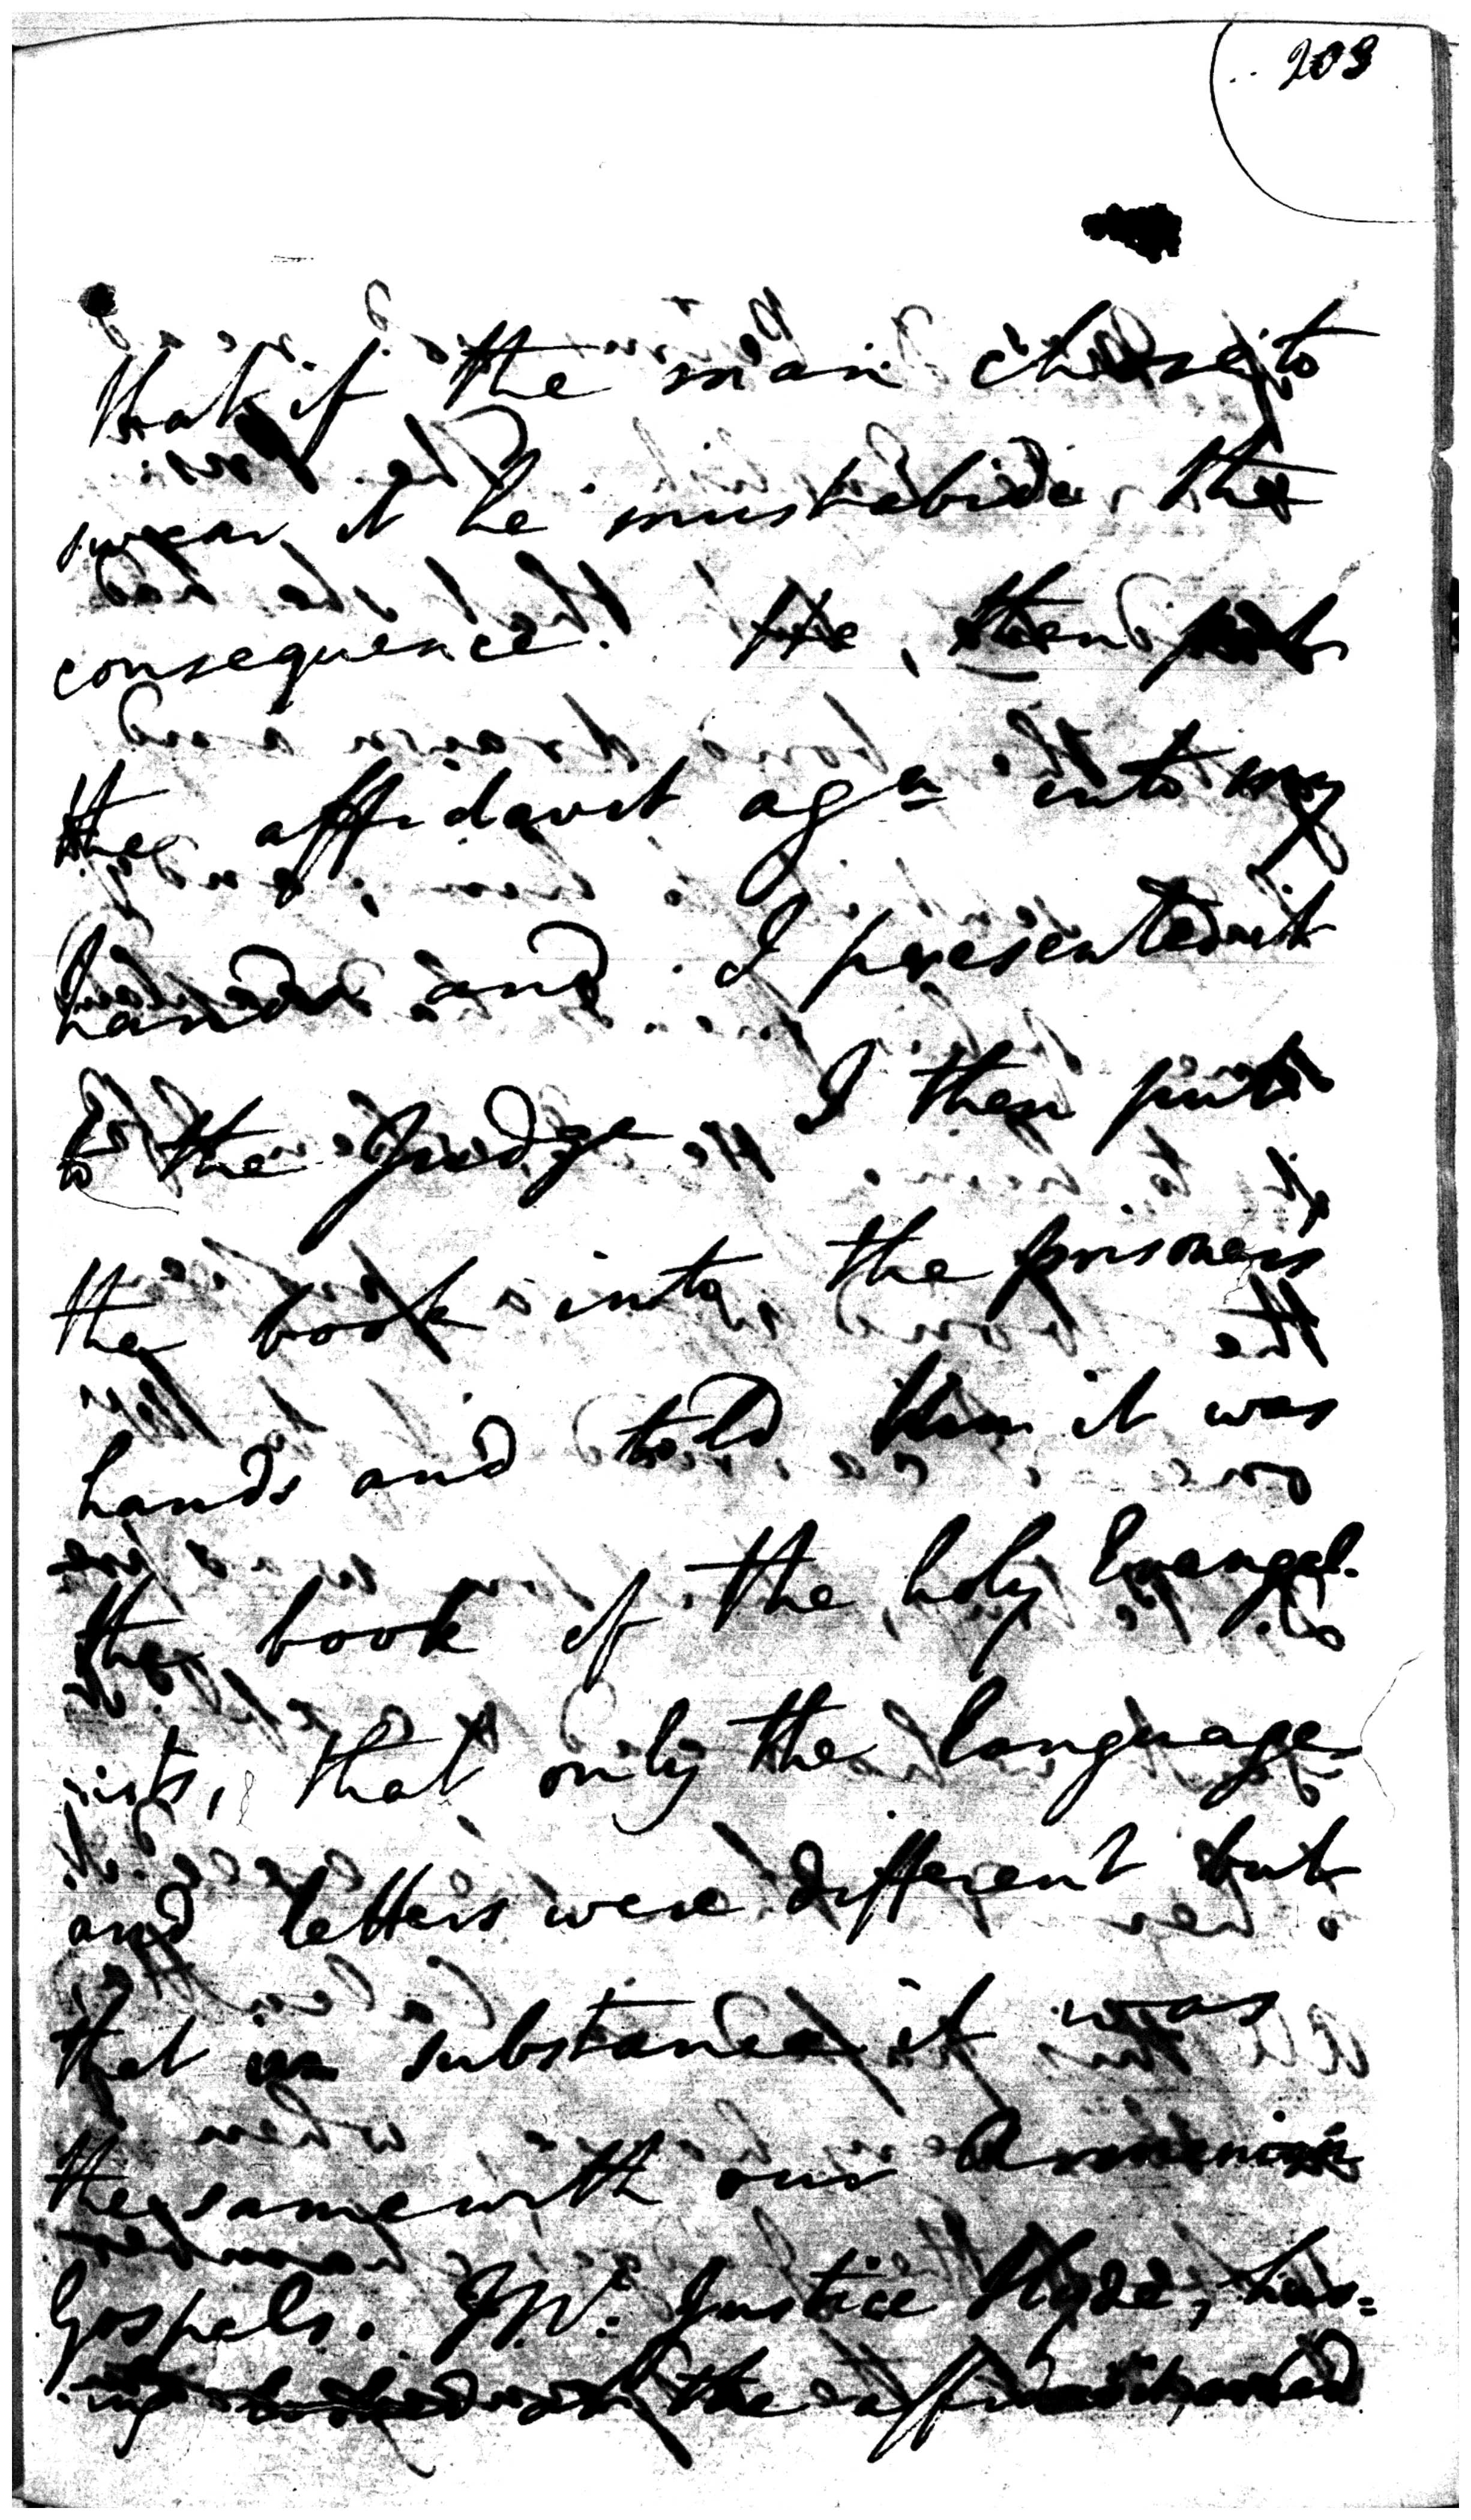 209
that if the man chose to
swear it he must abide the
consequence. He, then put
the affidavit agn into my
hands and I presented it
to the Judge. I then put
the book into the prisoners
hands and told him it was
the book of the holy Evangel-
ists, that only the language
and letters were different but
that in substance it was
the same with our Armenian
Gospels. Mr. Justice Hyde, hav=
ing looked at the affidavit, asked